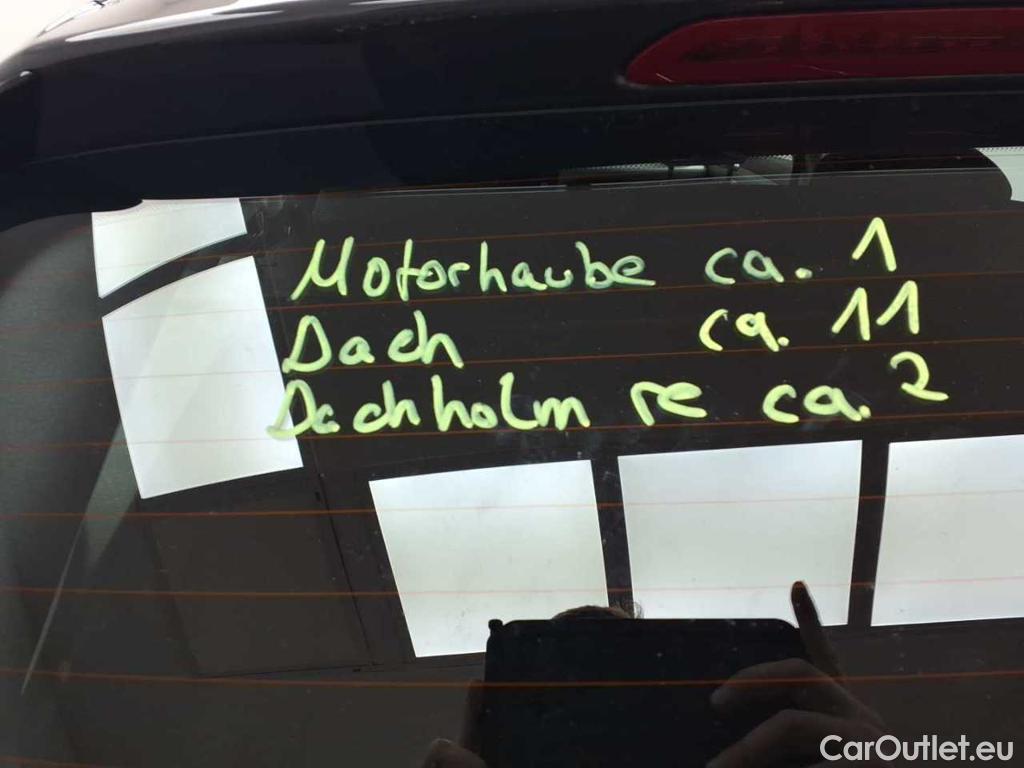 Motorhaube ca. 1
Dach ca. 11
Dachholm re ca. 2
CarOutlet.eu